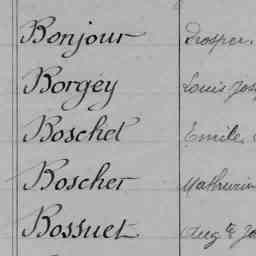 Bonjour Prosper.
Borgéy Louis Jos
Boschet Emile
Boscher Mathurin
Bossuet Augte Jo